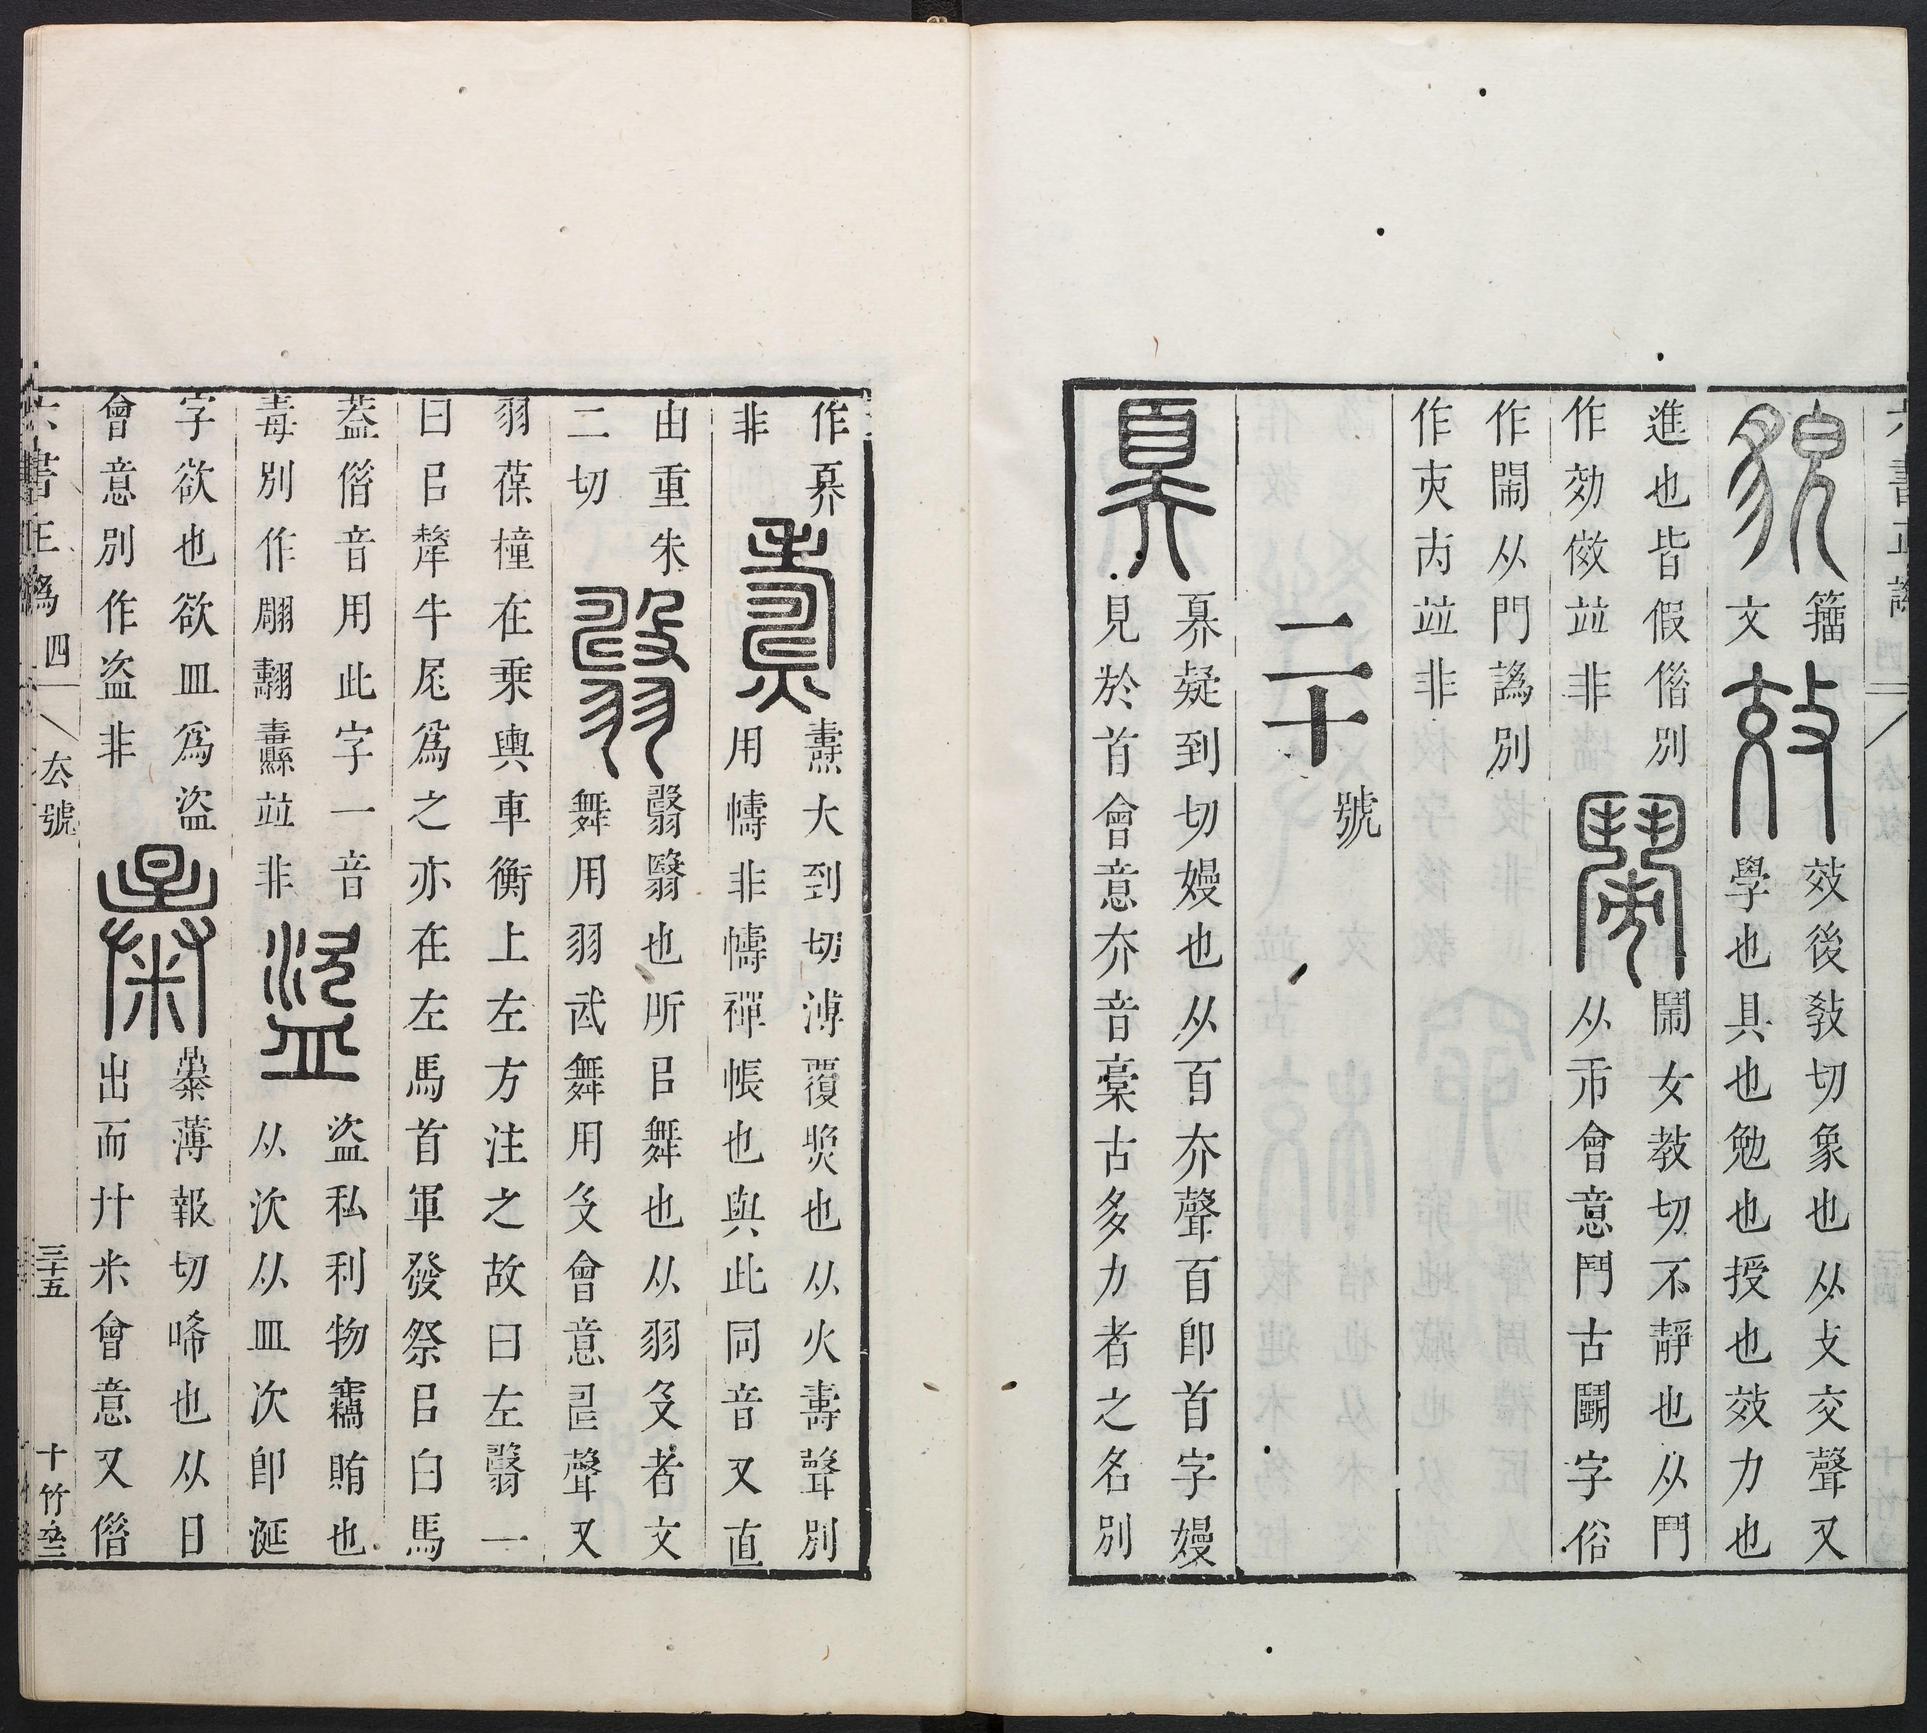 貌籀
文效效後敎切象也从攴交聲又
學也具也勉也授也效力也
進也皆假借別
作効傚竝非鬧鬧女教切不靜也从鬥
从巿會意鬥古鬭字俗
作閙从門譌別
作㕝竝非
二十
號
奡奡疑到切嫚也从百夰聲百卽首字嫚
見於首會意夰音槀古多力者之名別
作奡
非燾燾大到切溥覆焸也从火壽聲別
用幬非幬襌帳也與此同音又直
由重朱
二切翳翳翳也所㠯舞也从羽殳者文
舞用羽武舞用殳會意㔽聲又
羽葆橦在乘輿車衡上左方注之故曰左翳一
曰㠯犛牛尾爲之亦在左馬首軍發祭㠯白馬
葢借音用此字一音
毒別作翢翿纛竝非盜盜私利物竊賄也
从㳄从皿㳄卽涎
字欲也欲皿爲盜
會意別作盗非暴暴薄報切晞也从日
出而廾米會意又借
六書正譌 四 厺號 三十五 十竹齋